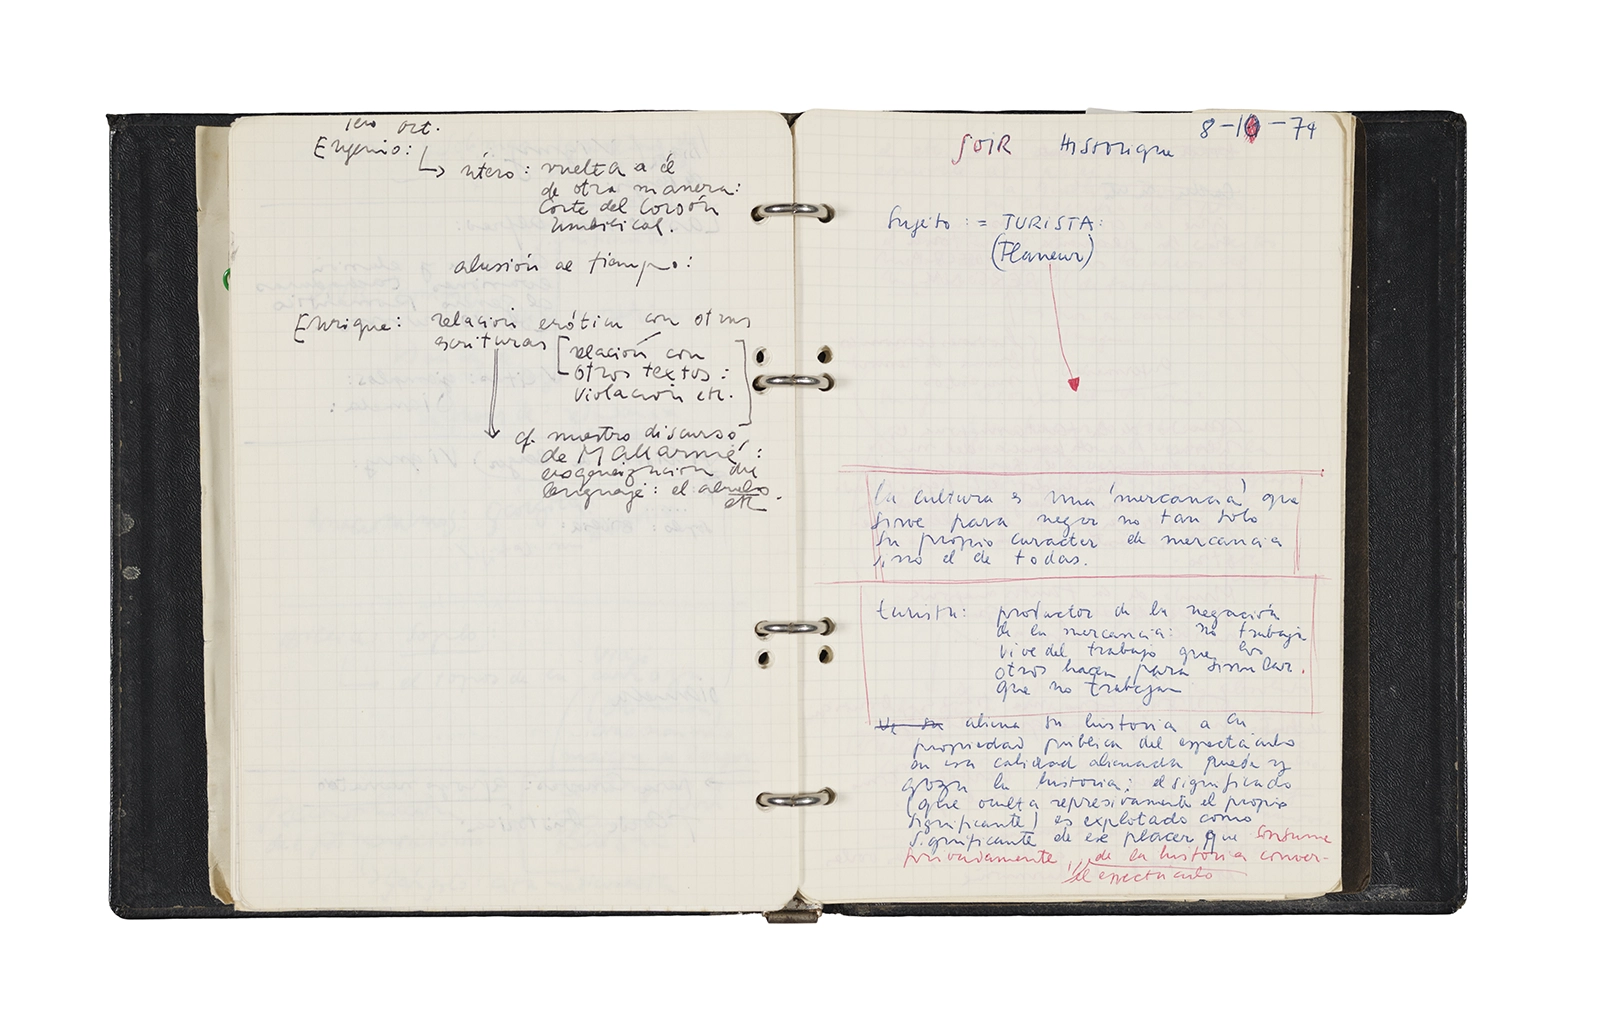 1ero oct.
Eugenio:
útero: vuelta a él
de otra manera:
Corte del Cordón
Umbilical.
alusión al tiempo:
Enrique: relación erótica con otras
escrituras
relación con
otros textos:
violación etc.
cf. nuestro discurso
de Mallarmé:
lenguaje: el abuelo
etc
8-10-74
SOIR Historique
Sujeto := TURISTA:
(Flaneur)
La cultura es una 'mercancía' que
sirve para negar no tan sólo
su propio caracter de mercancía
sino el de todas.
turista: productor de la negación
de la mercancía: no trabaja
vive del trabajo que los
otros hacen para simular
que no trabajan
aliena su historia a la
propiedad pública del espectáculo
en esa calidad alienada puede
goza la historia; el significado
(que oculta represivamente el propio
significante) es explotado como
significante de ese placer que consume
privadamente, de la historia conver-
el espectáculo